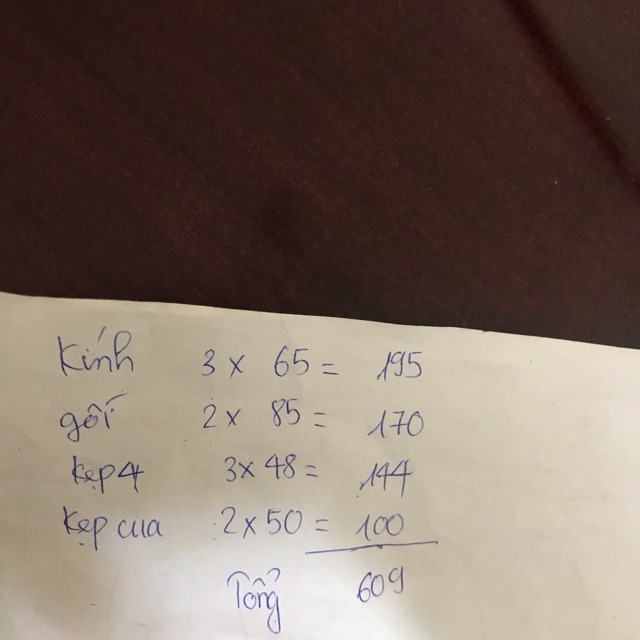 Kính 3 x 65 = 195
gối 2 x 85 = 170
kẹp 4 3 x 48 = 144
kẹp cua 2 x 50 = 100
Tổng 609